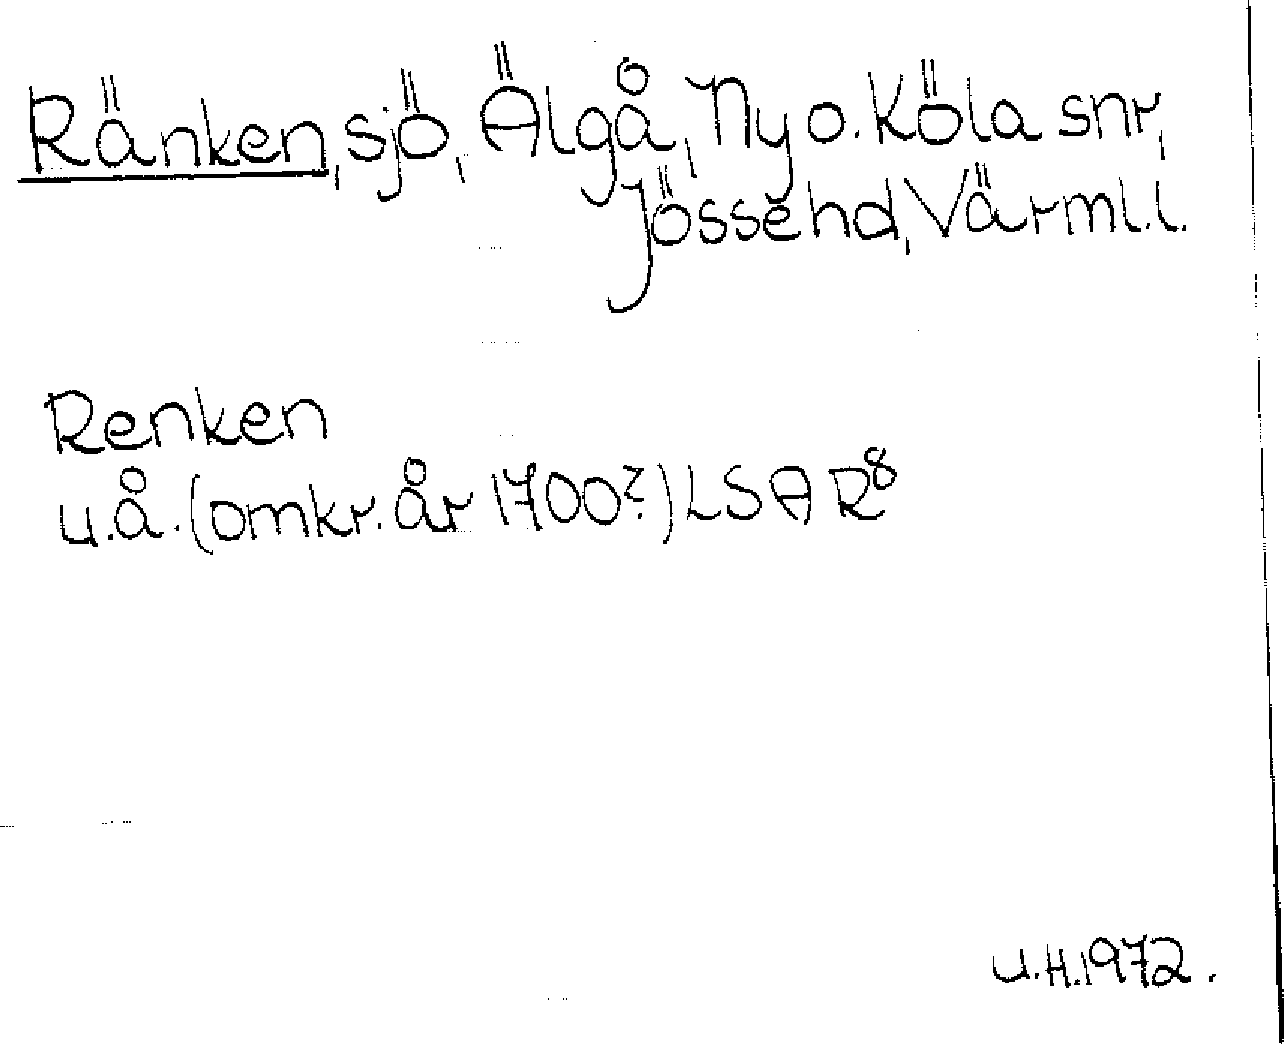 Ränken, sjö, Älgå, Ny o. Köla snr,
Jösse hd, Värml.l.
Renken
u.å. (omkr. år 1700?) LSA R8
U.H.1972.